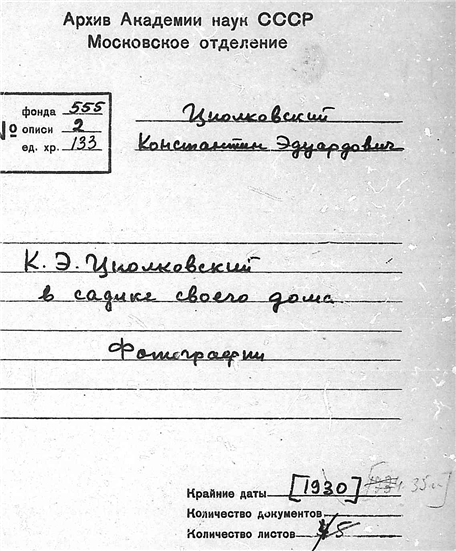 Архив Академии наук СССР
Московское отделение
№
фонда 555
описи 2
ед. хр. 133
Циолковский
Константин Эдуардович
К. Э. Циолковский
в садике своего дома
Фотографии
Крайние даты [1930]
Количество документов
Количество листов 5